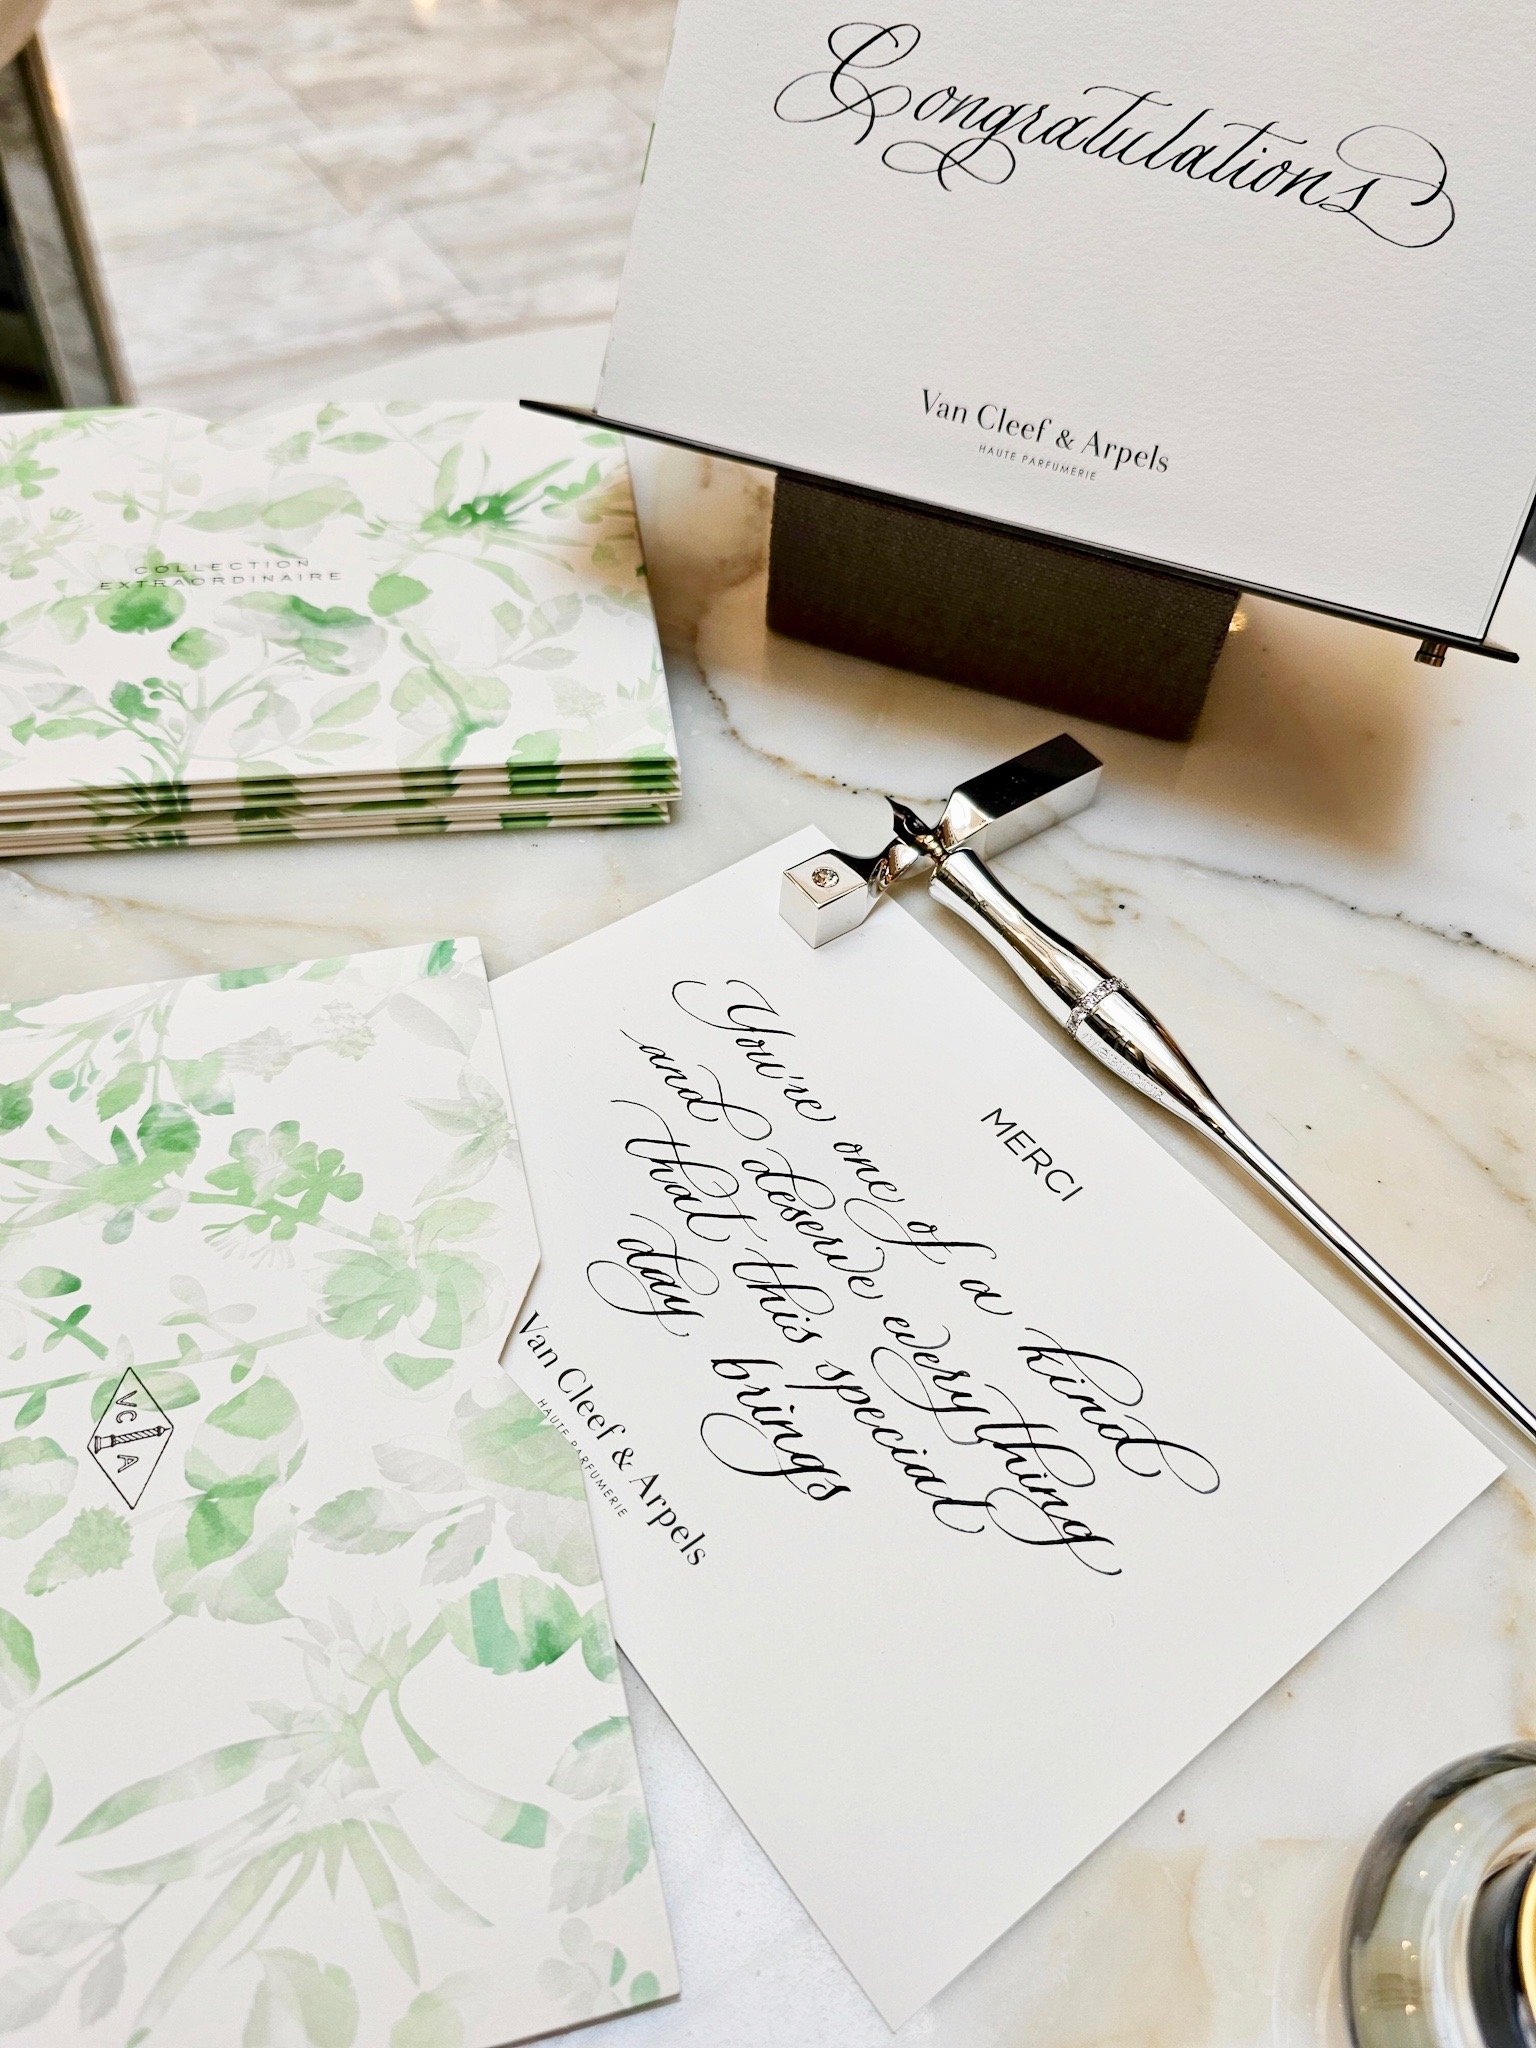 Congratulations
Van Cleef & Arpels
HAUTE PARFUMERIE
COLLECTION
EXTRAORDINAIRE
MERCI
You're one of a kind
and deserve everything
that this special
day brings
Van Cleef & Arpels
HAUTE PARFUMERIE
VC
A